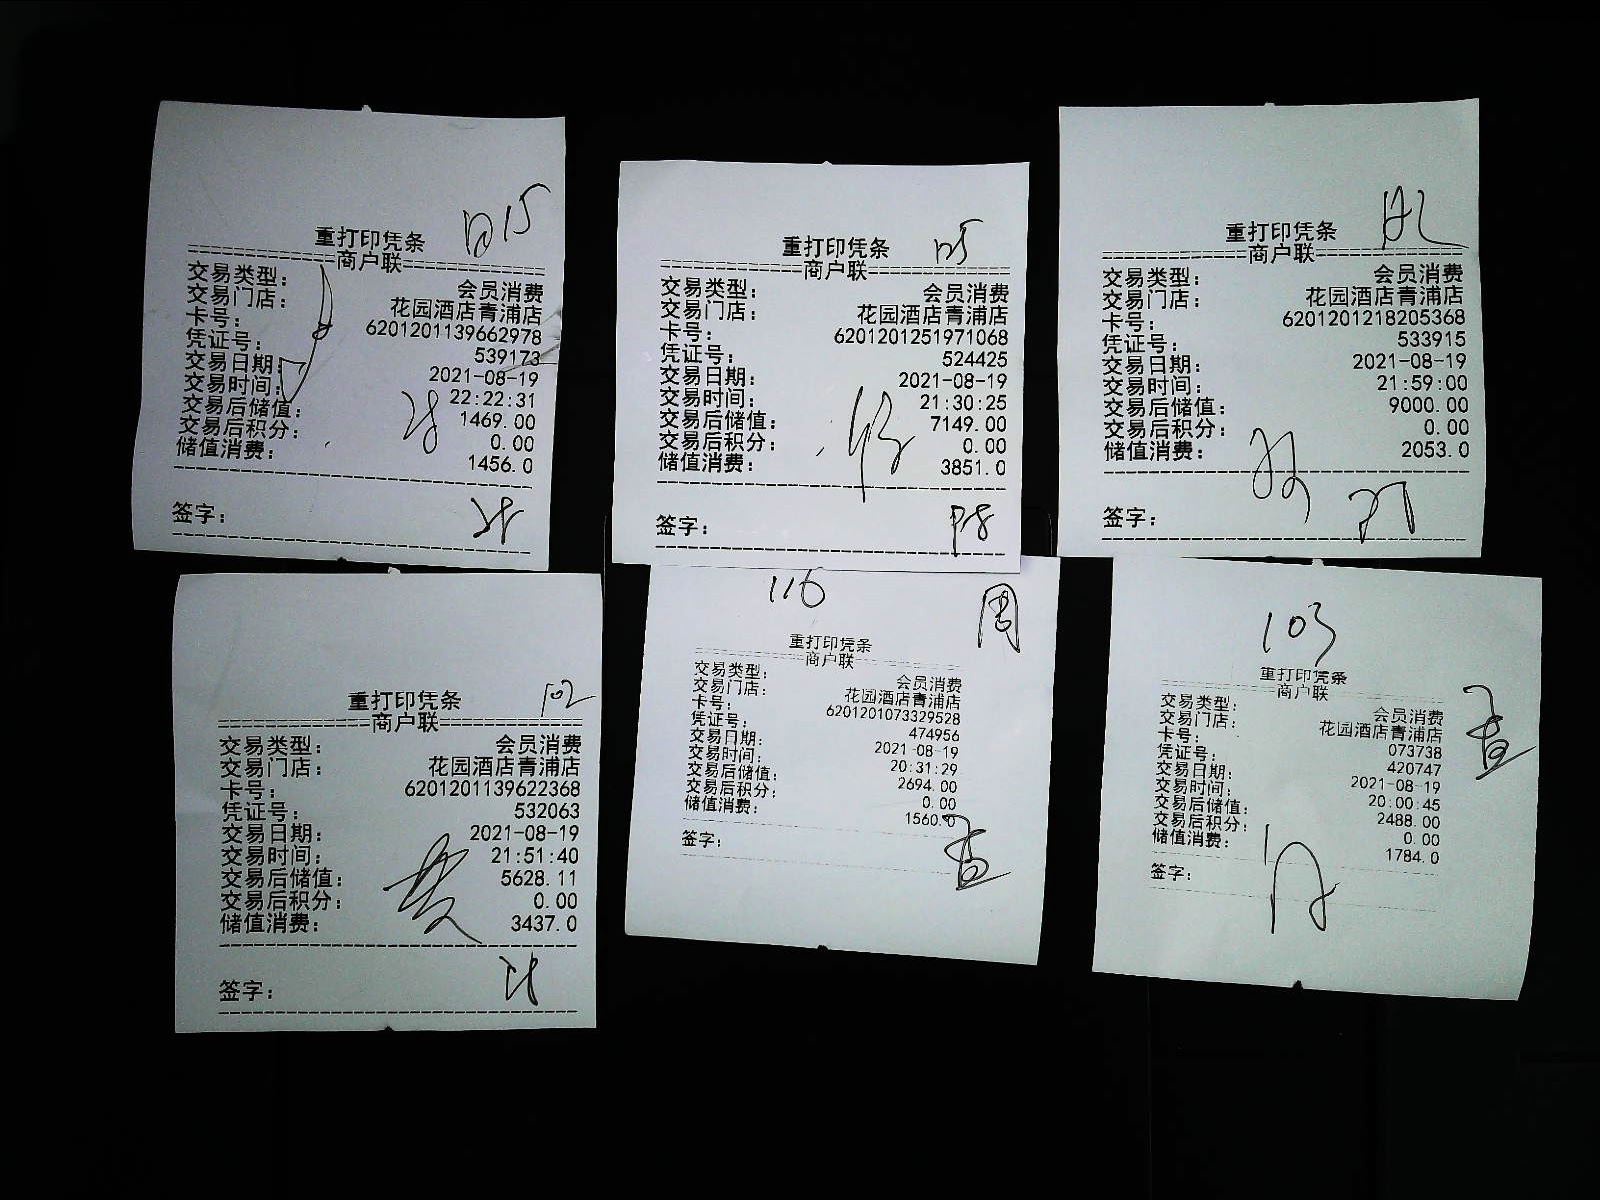 重打印凭条
商户联
交易类型： 会员消费
交易门店： 花园酒店青浦店
卡号： 6201201139662978
凭证号： 539173
交易日期： 2021-08-19
交易时间： 22:22:31
交易后储值： 1469.00
交易后积分： 0.00
储值消费： 1456.0
签字：
重打印凭条
商户联
交易类型： 会员消费
交易门店： 花园酒店青浦店
卡号： 6201201251971068
凭证号： 524425
交易日期： 2021-08-19
交易时间： 21:30:25
交易后储值： 7149.00
交易后积分： 0.00
储值消费： 3851.0
签字：
重打印凭条
商户联
交易类型： 会员消费
交易门店： 花园酒店青浦店
卡号： 6201201218205368
凭证号： 533915
交易日期： 2021-08-19
交易时间： 21:59:00
交易后储值： 9000.00
交易后积分： 0.00
储值消费： 2053.0
签字：
102
重打印凭条
商户联
交易类型： 会员消费
交易门店： 花园酒店青浦店
卡号： 6201201139622368
凭证号： 532063
交易日期： 2021-08-19
交易时间： 21:51:40
交易后储值： 5628.11
交易后积分： 0.00
储值消费： 3437.0
签字：
116 周
重打印凭条
商户联
交易类型： 会员消费
交易门店： 花园酒店青浦店
卡号： 6201201073329528
凭证号： 474956
交易日期： 2021-08-19
交易时间： 20:31:29
交易后储值： 2694.00
交易后积分： 0.00
储值消费： 1560.0
签字：
103
重打印凭条
商户联
交易类型： 会员消费
交易门店： 花园酒店青浦店
卡号： 073738
凭证号： 420747
交易日期： 2021-08-19
交易时间： 20:00:45
交易后储值： 2488.00
交易后积分： 0.00
储值消费： 1784.0
签字：